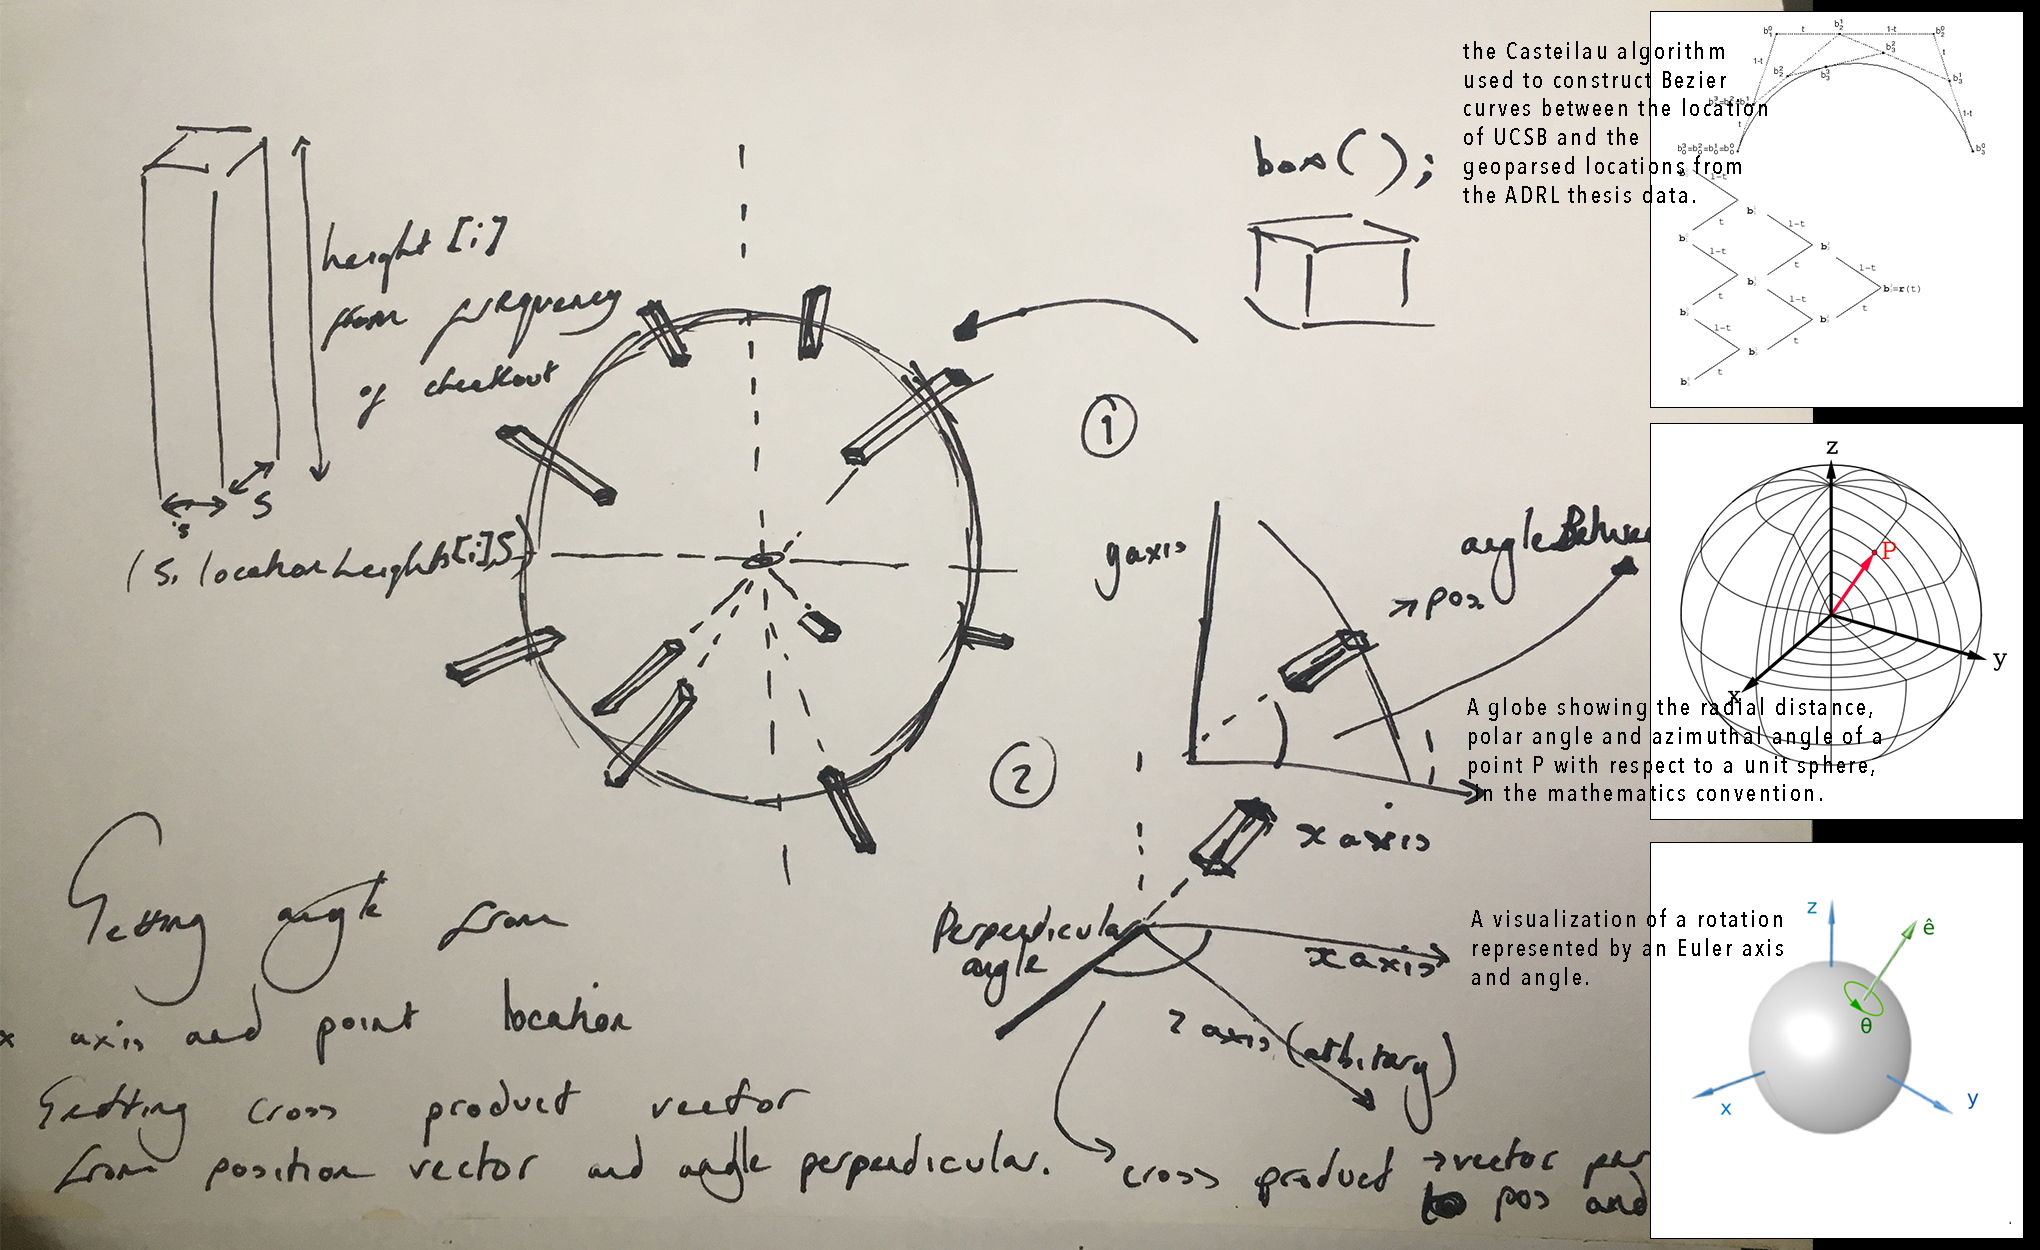 height [i]
from frequency
of checkout
S
S
(S, locationheights[i],S)
box();
1
yaxis
→ pos
angleBetwee
x axis
2
Perpendicular
angle
x axis
z axis (arbitary)
Getting angle from
x axis and point location
Getting cross product vector
from position vector and angle perpendicular.
cross product → vector per
to pos and
the Casteilau algorithm
used to construct Bezier
curves between the location
of UCSB and the
geoparsed locations from
the ADRL thesis data.
t
1-t
1-t
t
1-t
t
1-t
t
1-t
t
1-t
t
1-t
t
1-t
t
1-t
t
1-t
t
=r(t)
z
P
y
x
A globe showing the radial distance,
polar angle and azimuthal angle of a
point P with respect to a unit sphere,
in the mathematics convention.
A visualization of a rotation
represented by an Euler axis
and angle.
z
ê
θ
x
y